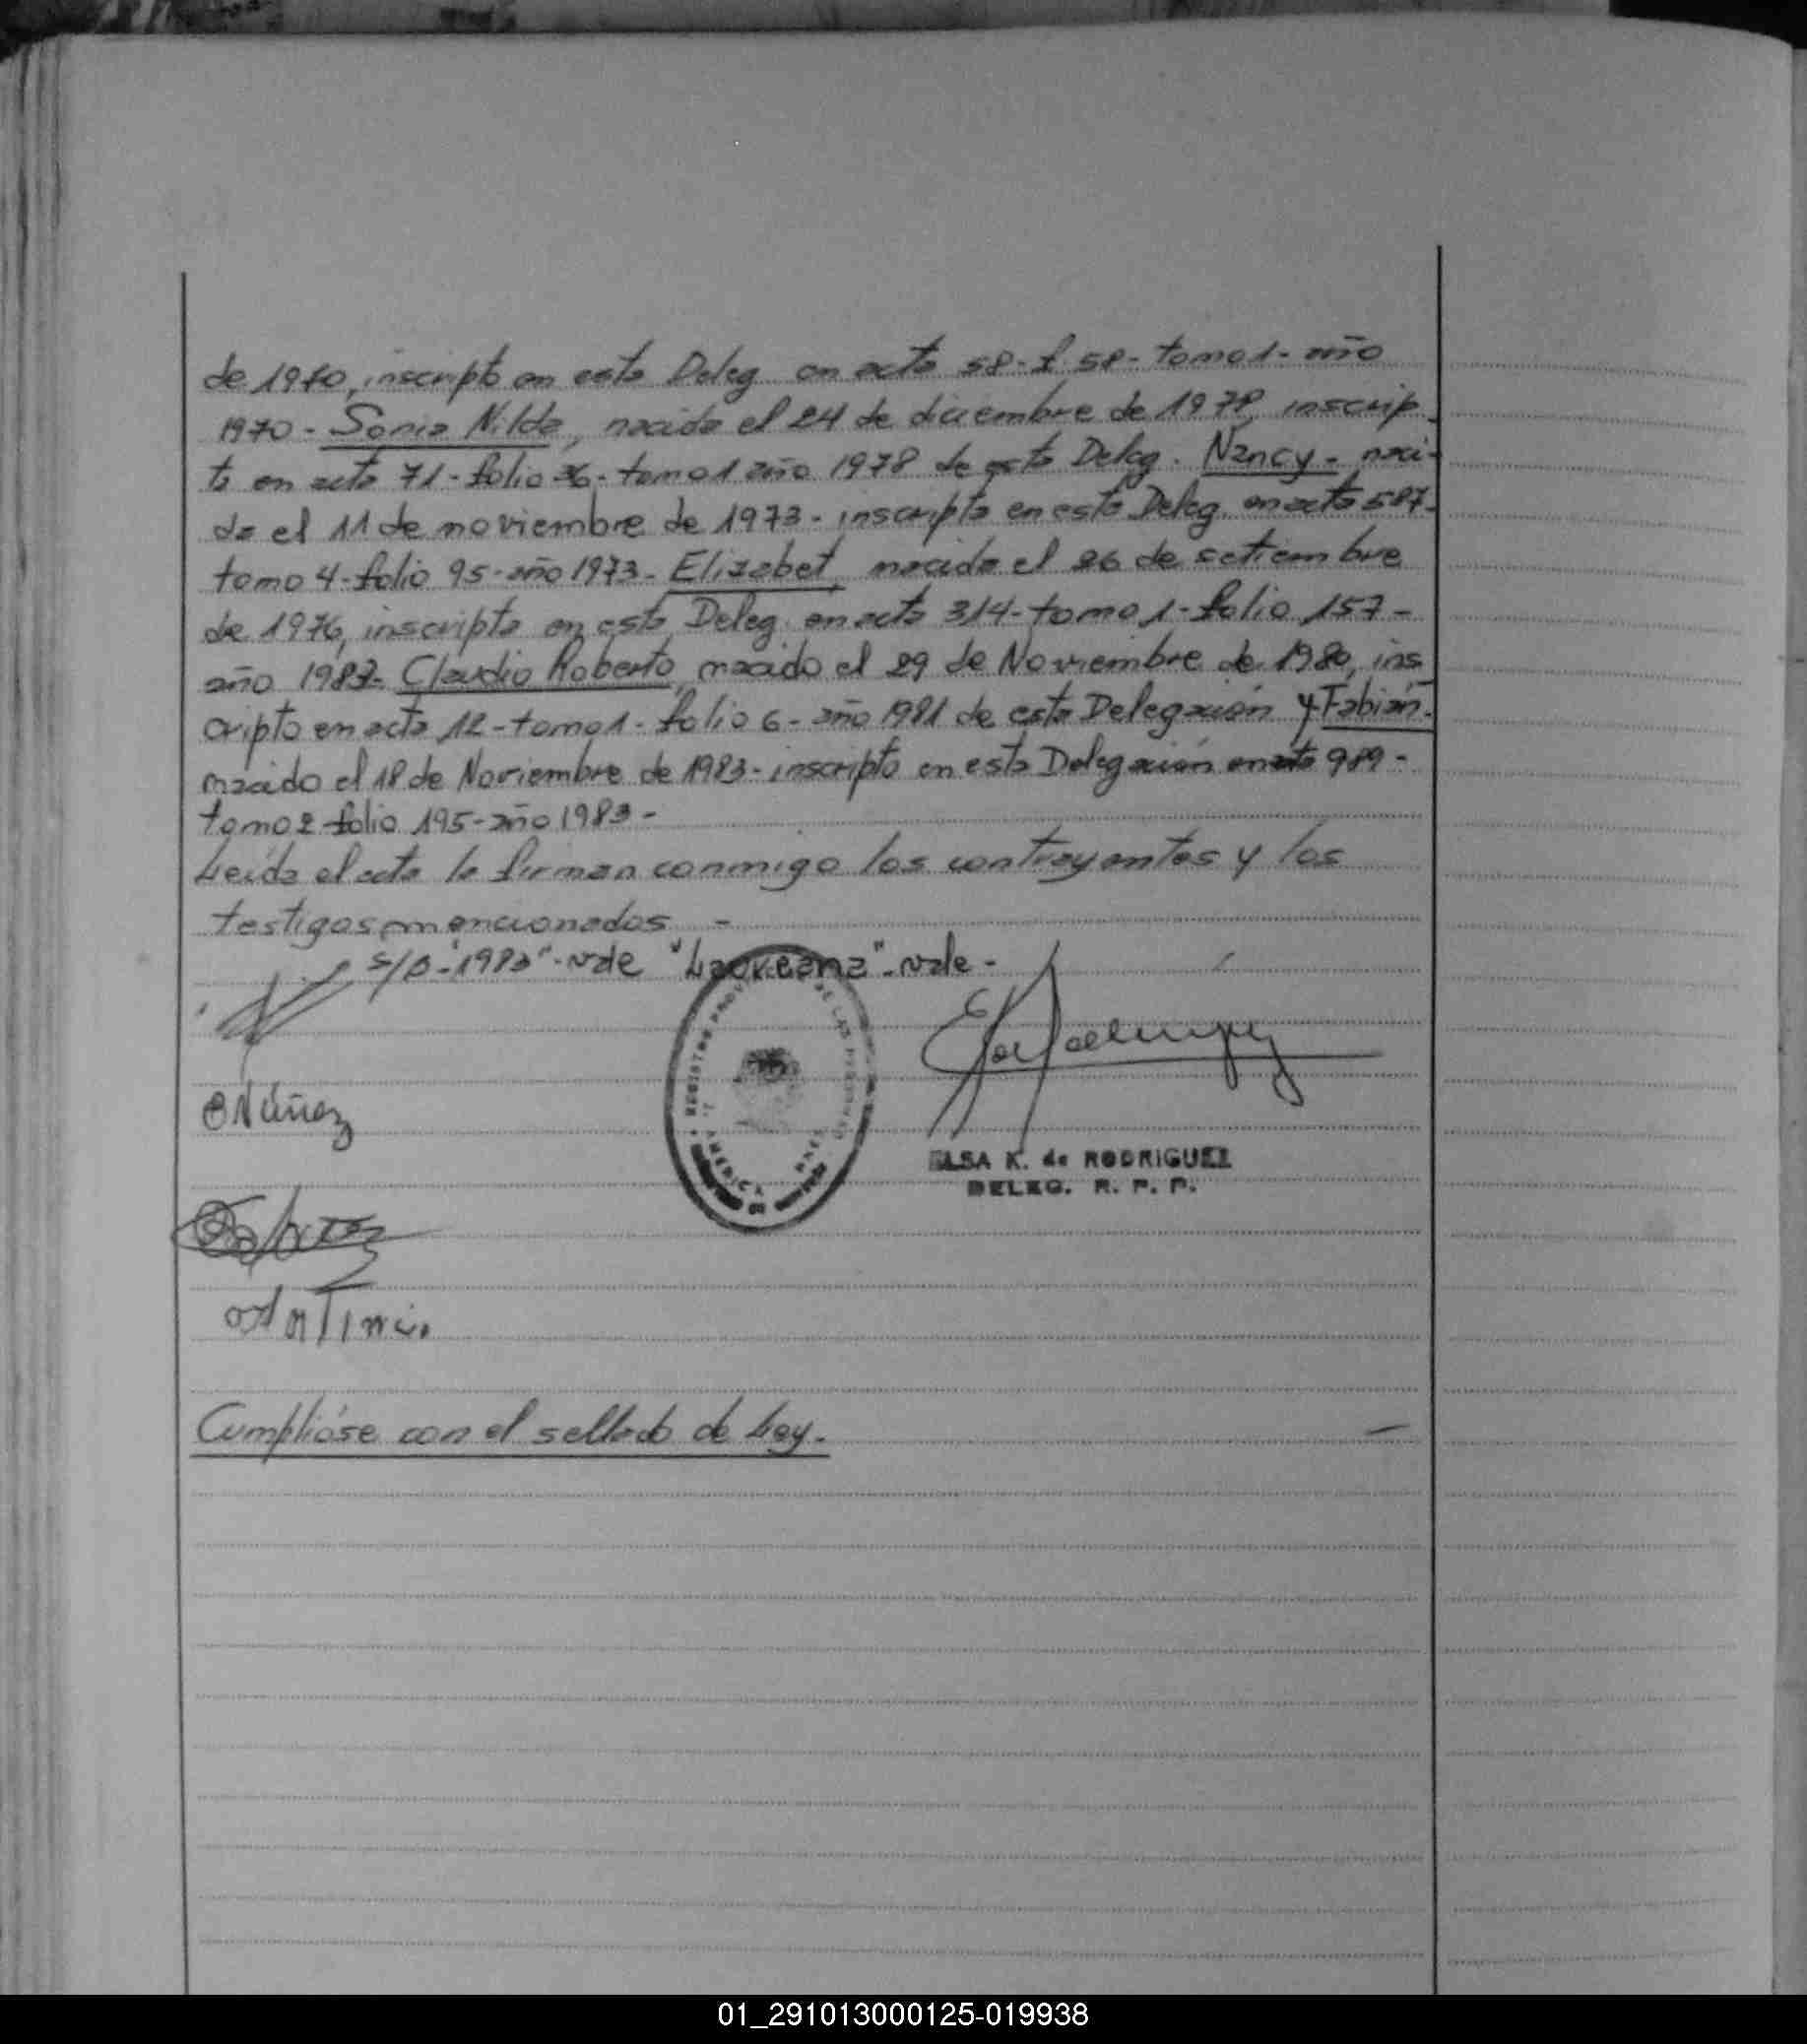 de 1970, inscripto en esta Deleg en acta 58- f 58- tomo 1- año
1970 - Sonia Nilda, nacida el 24 de diciembre de 1978, inscrip-
ta en acta 71- folio 36- tomo 1 año 1978 de esta Deleg. Nancy - naci-
da el 11 de noviembre de 1973- inscripta en esta Deleg. en acta 587-
tomo 4- folio 95- año 1973- Elizabet, nacida el 26 de setiembre
de 1976, inscripta en esta Deleg. en acta 314- tomo 1- folio 157-
año 1983- Claudio Roberto, nacido el 29 de Noviembre de 1980, ins
cripto en acta 12- tomo 1- folio 6- año 1981 de esta Delegación y Fabián-
nacido el 18 de Noviembre de 1983- inscripto en esta Delegación en acta 989-
tomo 2- folio 195- año 1983-
Leída el acta la firman conmigo los contrayentes y los
testigos mencionados -
s/b- "1983"- vale "Laureana"- vale-
REGISTRO
Núñez
ELSA K. de RODRIGUEZ
DELEG. R. P. P.
Cumplióse con el sellado de Ley. -
01_291013000125-019938